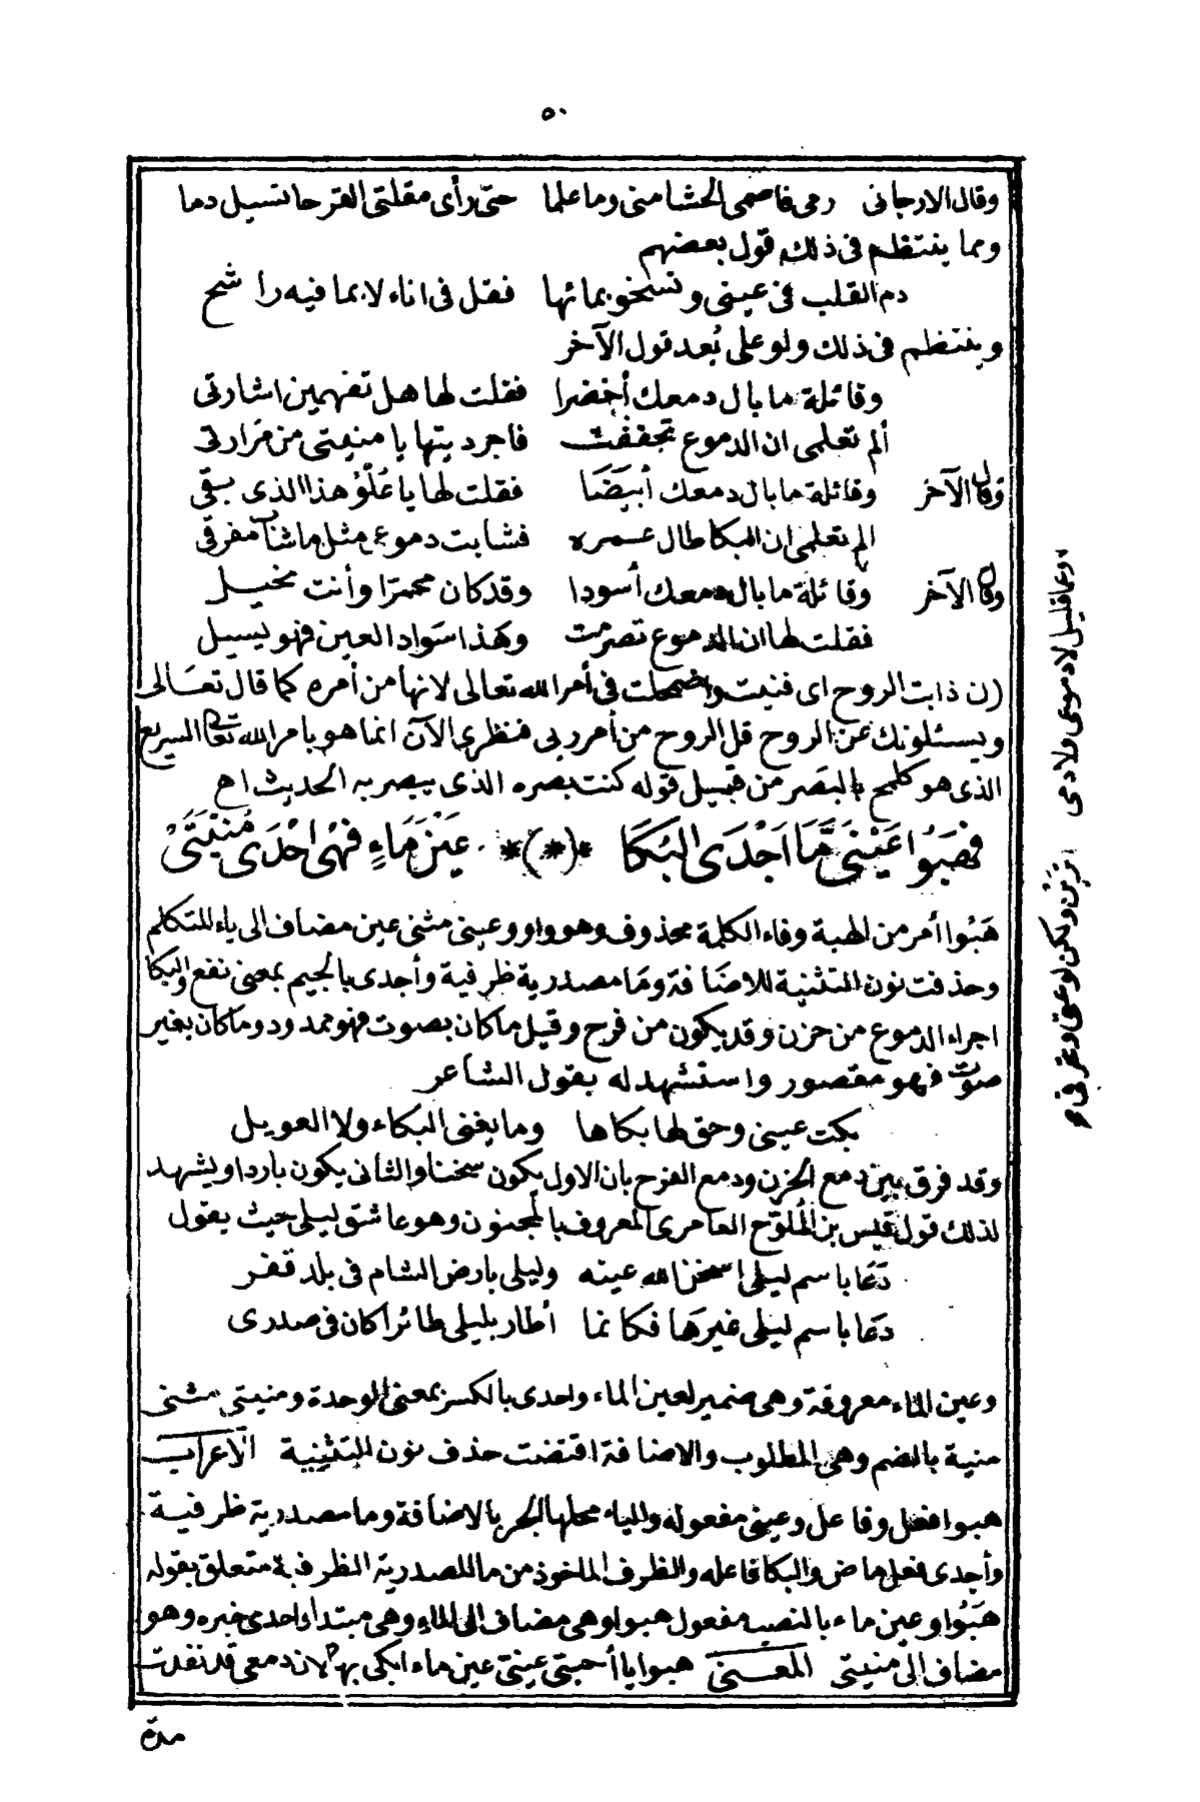 ٥٠
وقال الارجانى رمى فاصمى الحشا منى وما علما حتى رأى مقلتى القرحا تسيل دما
ومما ينتظم فى ذلك قول بعضهم
دم القلب فى عينى وتسخو بمائها فقل فى اناء لا بما فيه راشح
وينتظم فى ذلك ولو على بُعد قول الآخر
وقائلة ما بال دمعك أخضرا فقلت لها هل تفهمين اشارتى
ألم تعلمى ان الدموع تجففت فاجريتها يا منيتى من مَرارتى
وقال الآخر وقائلة ما بال دمعك أبيَضَا فقلت لها يا عَلْوُ هذا الذى بقى
الم تعلمى ان البكا طال عمره فشابت دموعى مثل ما شاب مفرقى
وقال الآخر وقائلة ما بال دمعك أسودا وقد كان محمرّا وأنت نحيل
فقلت لها ان الدموع تصرمت وهذا سَواد العين فهو يسيل
(ن ذابت الروح اى فنيت واضمحلت فى أمر الله تعالى لانها من أمره كما قال تعَالى
ويسئلونك عن الروح قل الروح من أمر ربى فنظرى الآن انما هو بامر الله تعالى السريع
الذى هو كلمح بالبَصر من قبيل قوله كنت بصره الذى يبصر به الحديث اﻫ
فَهَبُوا عَيْنَىَّ مَا اَجْدَى البُكَا *(*)* عَيْنَ مَاءٍ فَهْىَ اِحْدَى مُنْيَتَىَّ
هَبُوا أمر من الهبة وفاء الكلمة محذوف وهو واو وعينى مثنى عين مضاف الى ياء المتكلم
وحذفت نون التثنية للاضافة وما مصدرية ظرفية وأجدى بالجيم بمعنى نفع والبكا
اجراء الدموع من حزن وقد يكون من فرح وقيل ما كان بصوت فهو ممدود وما كان بغير
صوت فهو مقصور واستشهد له بقول الشاعر
بكت عينى وحق لها بكاها وما يغنى البكاء ولا العويل
وقد فرق بين دمع الحزن ودمع الفرح بان الاول يكون سخنا والثانى يكون باردا ويشهد
لذلك قول قيس بن الملوّح العامرى المعروف بالمجنون وهو عاشق ليلى حيث يقول
دَعَا باسم ليلى اسخن الله عينه وليلى بارض الشام فى بلد قفر
دعَا باسم ليلى غيرَها فكانما أطار بليلى طائرا كان فى صدرى
وعين الماء معروفة وهى ضمير لعين الماء واحدى بالكسر بمعنى الوحدة ومنيتى مثنى
منية بالضم وهى المطلوب والاضافة اقتضت حذف نون التثنية الاعراب
هبوا فعل وفاعل وعينى مفعوله والياء محلها الجر بالاضافة وما مصدرية ظرفية
وأجدى فعل ماض والبكا فاعله والظرف الماخوذ من ما المصدرية الظرفية متعلق بقوله
هَبُوا وعين ماء بالنصب مفعول هبوا وهى مضاف الى الماء وهى مبتدا واحدى خبره وهو
مضاف الى منيتى المعنى هبوا يا أحبتى عينى عين ماء ابكى بها لان دمعى قد نفدت
وعما قليل لا دموعى ولا دمى